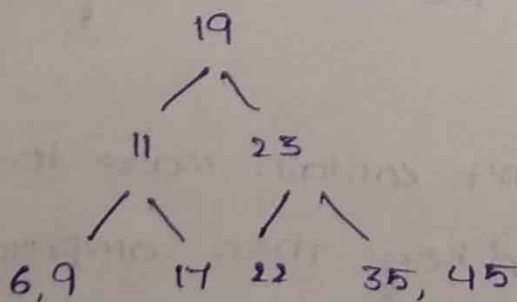 19
11 23
6, 9 17 22 35, 45